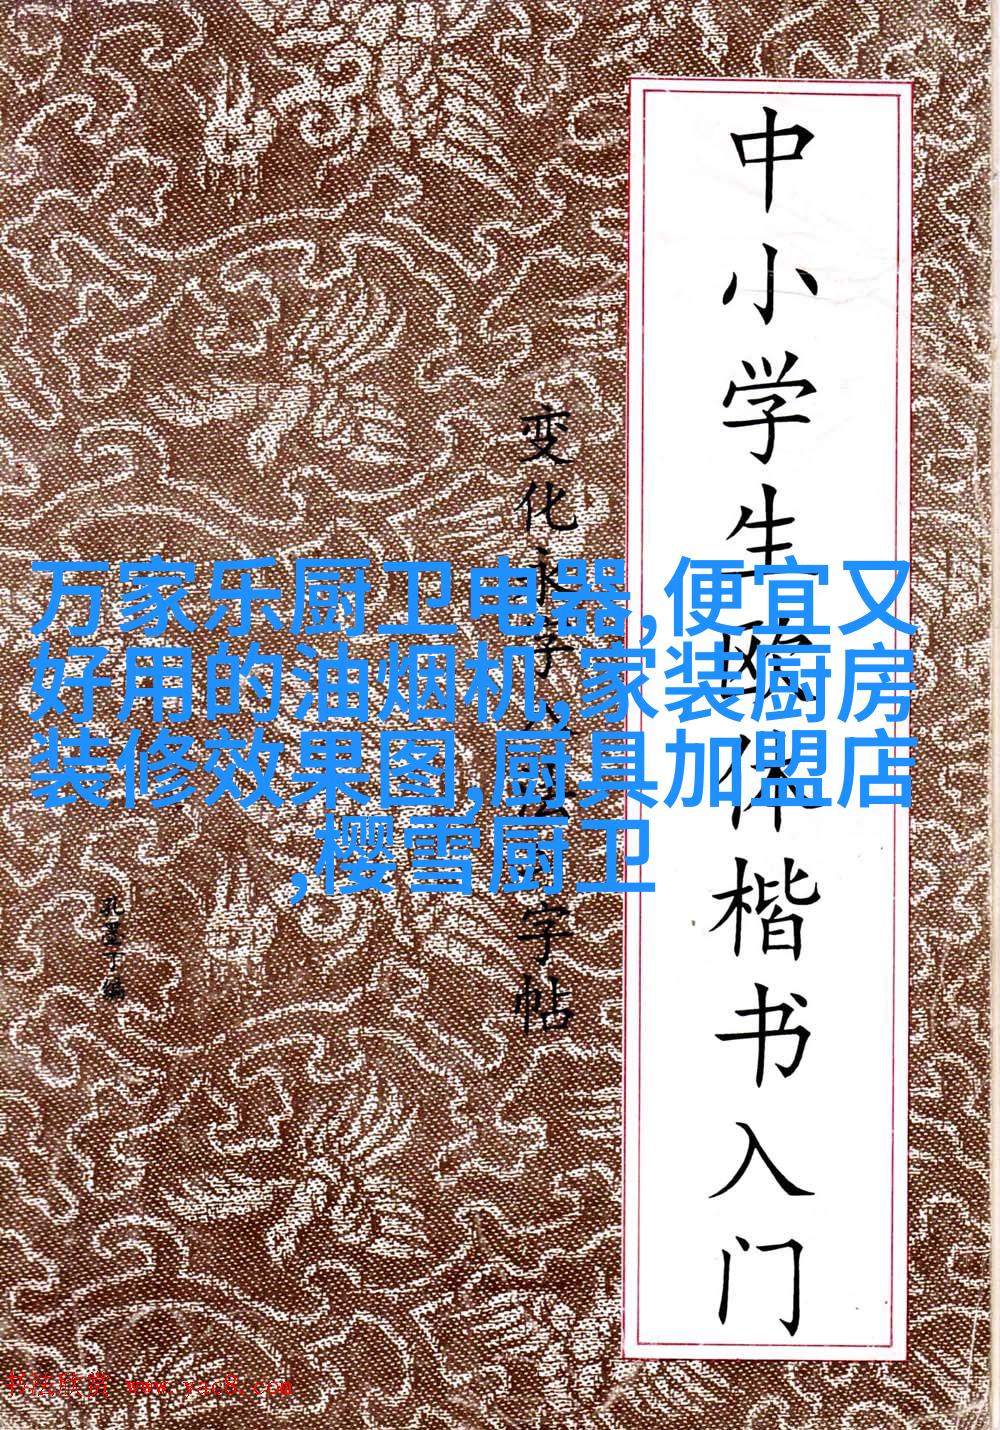 中小学生欧体楷书入门
变化永字八法字帖
孔墨丁编
万家乐厨卫电器,便宜又
好用的油烟机,家装厨房
装修效果图,厨具加盟店
,樱雪厨卫
书法欣赏 www.yac8.com